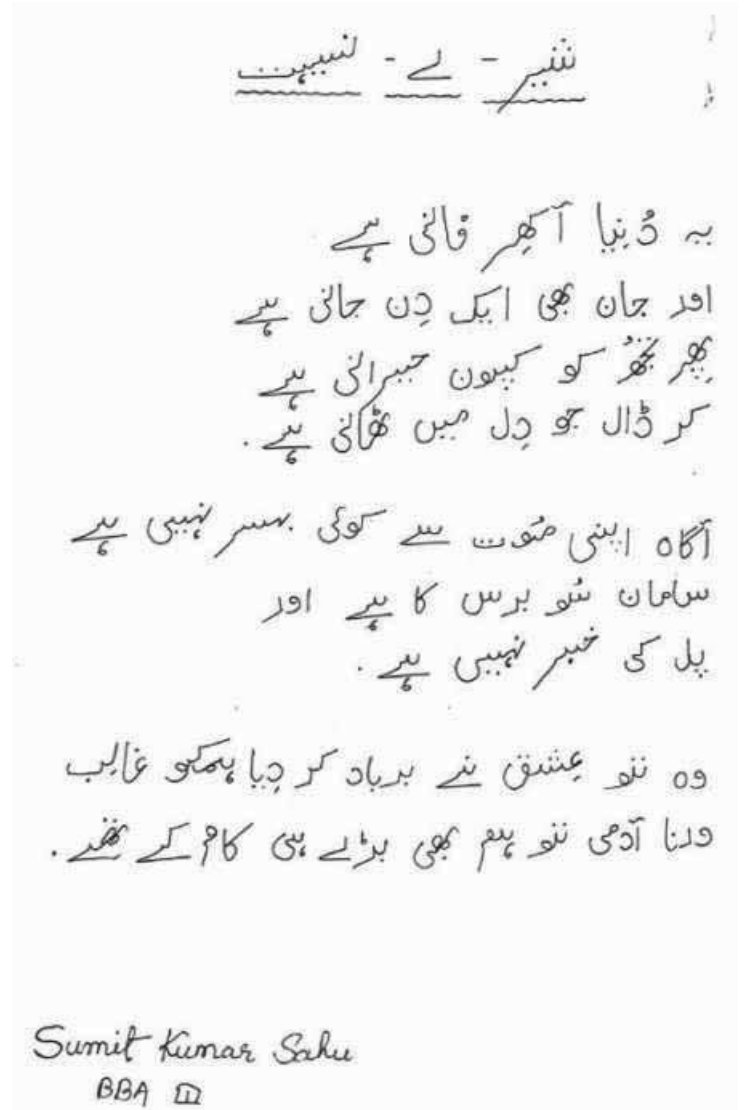 شیر - لے - نسیہت
یہ دُنیا آکھِر فانی ہے
اور جان بھی ایک دِن جانی ہے
پِھر تُجھُ کو کیون حیرانی ہے
کر ڈال جو دِل میں ٹھانی ہے۔
آگاہ اپنی مَوت سے کوئی بسر نہیی ہے
سامان سَو برس کا ہے اور
پل کی خبر نہیی ہے۔
وہ تو عِشق نے برباد کر دِیا ہمکو غالِب
ورنا آدمی تو ہم بھی بڑے ہی کام کے تھے۔
Sumit Kumar Sahu
BBA III